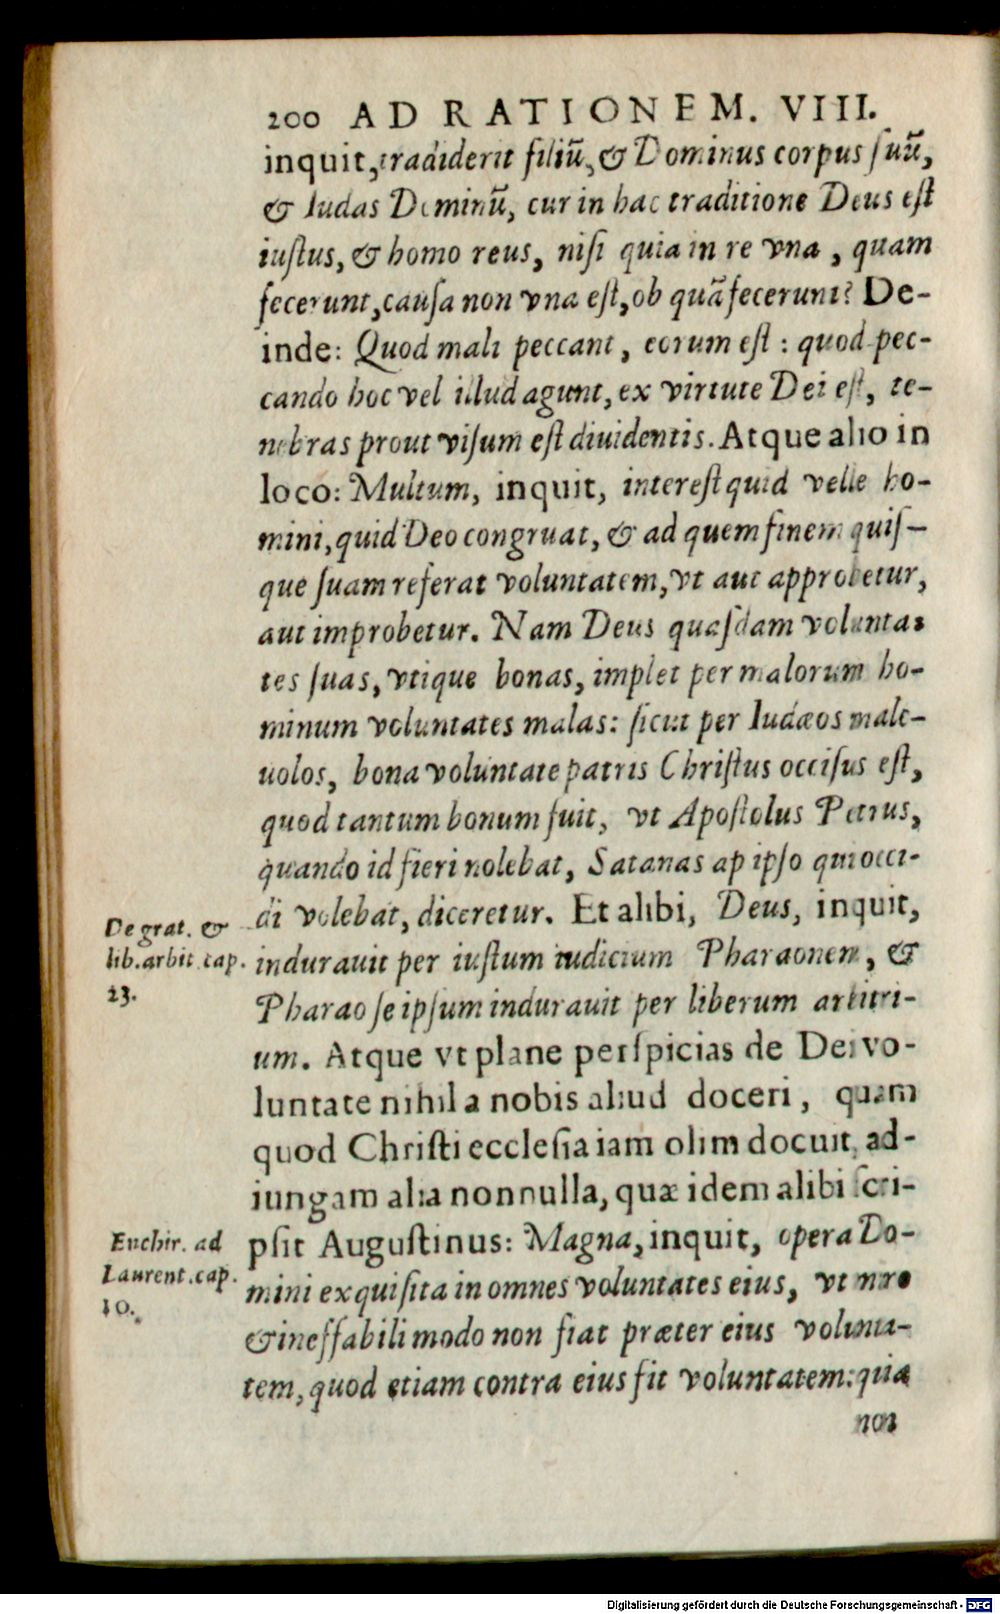 200 AD RATIONEM. VIII.
inquit, tradiderit filiũ, & Dominus corpus ſuũ,
& Iudas Dominũ, cur in hac traditione Deus eſt
iuſtus, & homo reus, niſi quia in re vna, quam
fecerunt, cauſa non vna eſt, ob quã fecerunt? De-
inde: Quod mali peccant, eorum eſt: quod pec-
cando hoc vel illud agunt, ex virtute Dei eſt, te-
nebras prout viſum eſt diuidentis. Atque alio in
loco: Multum, inquit, intereſt quid velle ho-
mini, quid Deo congruat, & ad quem finem quiſ-
que ſuam referat voluntatem, vt aut approbetur,
aut improbetur. Nam Deus quaſdam volunta-
tes ſuas, vtique bonas, implet per malorum ho-
minum voluntates malas: ſicut per Iudæos male-
uolos, bona voluntate patris Chriſtus occiſus eſt,
quod tantum bonum fuit, vt Apoſtolus Petrus,
quando id fieri nolebat, Satanas ap ipſo qui occi-
di volebat, diceretur. Et alibi, Deus, inquit,
De grat. &
lib. arbit. cap.
23.
indurauit per iuſtum iudicium Pharaonem, &
Pharao ſe ipſum indurauit per liberum arbitri-
um. Atque vt plane perſpicias de Dei vo-
luntate nihil a nobis aliud doceri, quam
quod Chriſti eccleſia iam olim docuit, ad-
iungam alia nonnulla, quæ idem alibi ſcri-
pſit Auguſtinus: Magna, inquit, opera Do-
Enchir. ad
Laurent. cap.
10.
mini exquiſita in omnes voluntates eius, vt miro
& ineffabili modo non fiat præter eius volunta-
tem, quod etiam contra eius fit voluntatem: quia
non
Digitalisierung gefördert durch die Deutsche Forschungsgemeinschaft - DFG